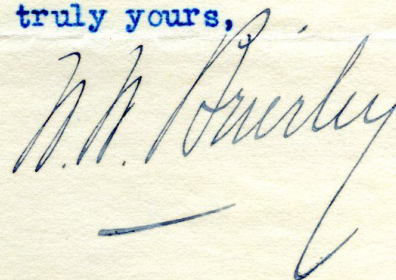 truly yours,
W. W. Brierley